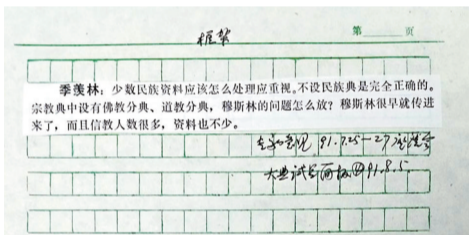 第 页
框架
季羡林：少数民族资料应该怎么处理应重视。不设民族典是完全正确的。
宗教典中设有佛教分典、道教分典，穆斯林的问题怎么放？穆斯林很早就传进
来了，而且信教人数很多，资料也不少。
专家意见 91.7.25-27座谈会
大典试写简报⑪ 91.8.5.